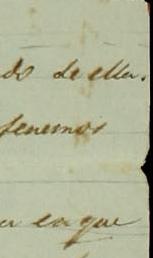 do de ella.
tenemos
a en que